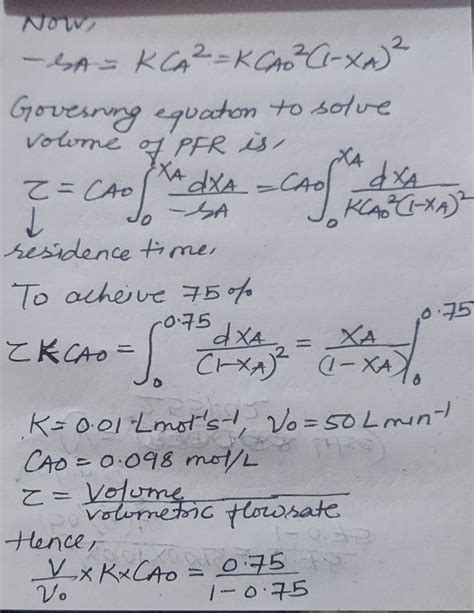 Now,
-rA = KCA² = KCAO²(1-XA)²
Governing equation to solve
volume of PFR is,
τ = CAO ∫₀^XA dXA/-rA = CAO ∫₀^XA dXA/KCAO²(1-XA)²
↓
residence time,
To acheive 75%
τKCAO = ∫₀^0.75 dXA/(1-XA)² = XA/(1-XA) |₀^0.75
K = 0.01 Lmol⁻¹s⁻¹, V0 = 50 L min⁻¹
CAO = 0.098 mol/L
τ = Volume/volumetric flowrate
Hence,
V/V0 × K × CAO = 0.75/1-0.75